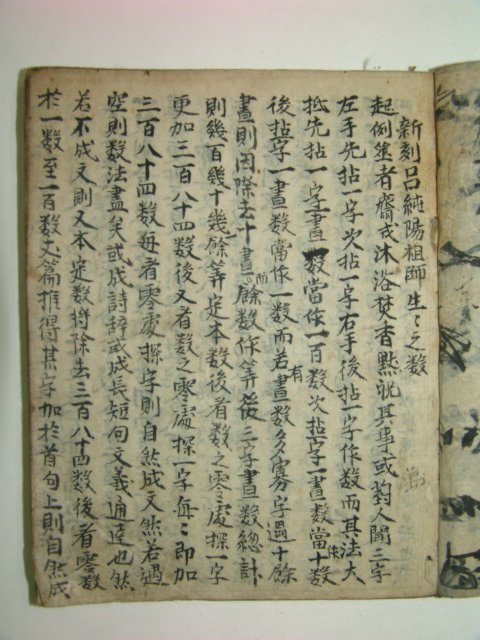 新刻呂純陽祖師生〻之数
起例筮者齋戒沐浴焚香點祝其事或對人開三字
左手先拈一字次拈一字右手後拈一字作数而其法大
抵先拈一字畫一数當作一百数次拈字一畫数當十数
後拈字一畫数當作一数而若畫数多字過十餘
畫則因除去十畫而餘数作筭後三字畫数總計
則幾百幾十幾餘筭定本数後看数之零處探一字
更加三百八十四数後又看数之零處探一字每〻即加
三百八十四数每看零處探字則自然成文然若遇
空則数法盡矣或成詩辞或成長短句文義通達也然
若不成文則又本定数將除去三百八十四数後看零数
於一数至一百数文篇推得某字加於首句上則自然成